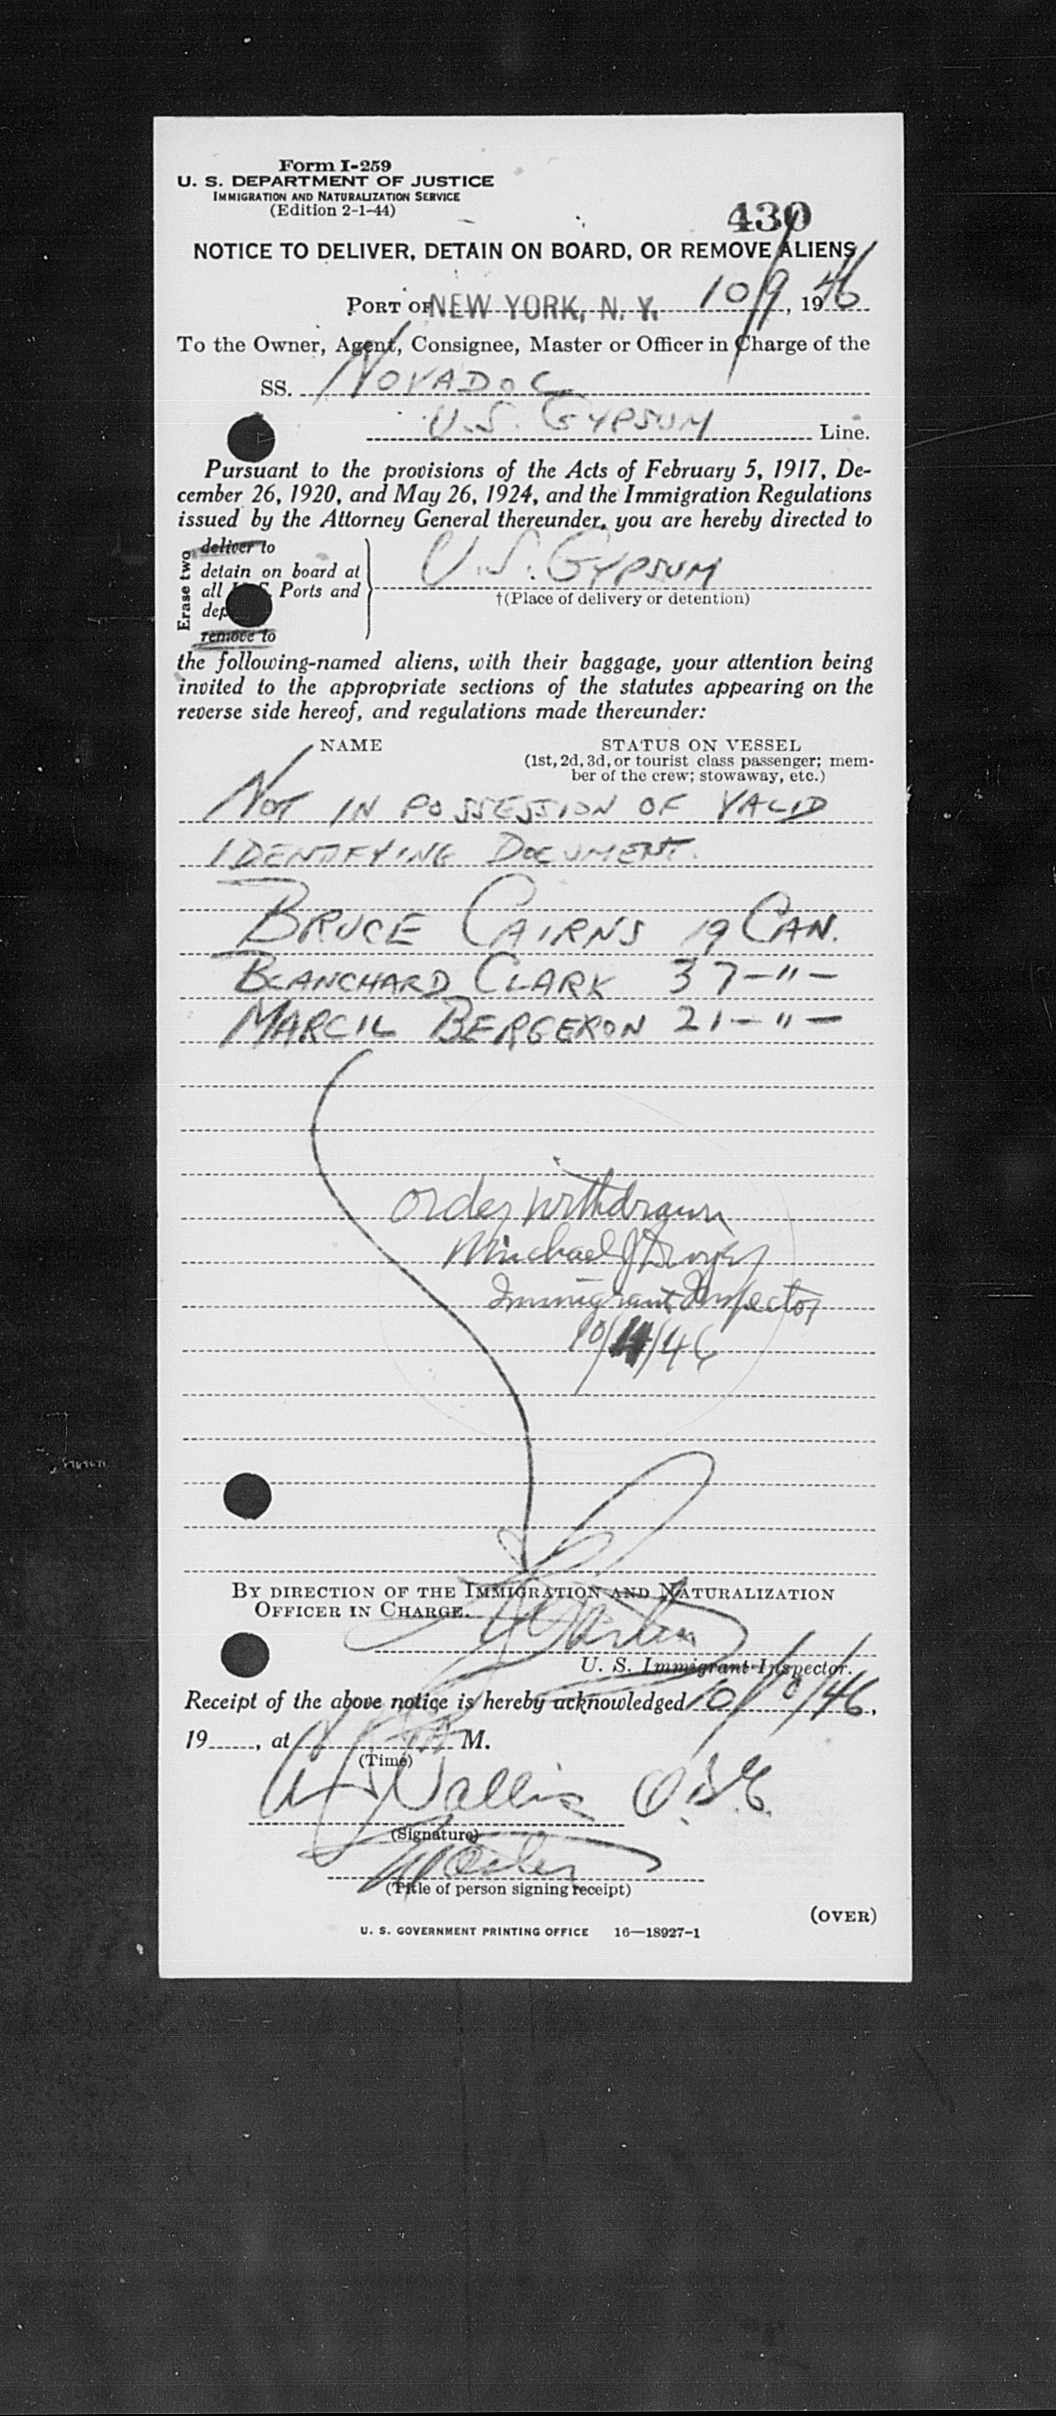 Form I-259
U. S. DEPARTMENT OF JUSTICE
IMMIGRATION AND NATURALIZATION SERVICE
(Edition 2-1-44)
430
NOTICE TO DELIVER, DETAIN ON BOARD, OR REMOVE ALIENS
PORT OF NEW YORK, N. Y. 10/9, 1946
To the Owner, Agent, Consignee, Master or Officer in Charge of the
SS. NOVADOC
U.S. GYPSUM Line.
Pursuant to the provisions of the Acts of February 5, 1917, De-
cember 26, 1920, and May 26, 1924, and the Immigration Regulations
issued by the Attorney General thereunder, you are hereby directed to
Erase two
deliver to
detain on board at
all Ports and
remove to
U.S. GYPSUM
†(Place of delivery or detention)
the following-named aliens, with their baggage, your attention being
invited to the appropriate sections of the statutes appearing on the
reverse side hereof, and regulations made thereunder:
NAME STATUS ON VESSEL
(1st, 2d, 3d, or tourist class passenger; mem-
ber of the crew; stowaway, etc.)
NOT IN POSSESSION OF VALID
IDENTIFYING DOCUMENT.
BRUCE CAIRNS 19 CAN.
BLANCHARD CLARK 37 -"-
MARCIL BERGERON 21 -"-
Order withdrawn
Michael J
Immigrant Inspector
10/11/46
BY DIRECTION OF THE IMMIGRATION AND NATURALIZATION
OFFICER IN CHARGE.
U. S. Immigrant Inspector.
Receipt of the above notice is hereby acknowledged 10/10/46,
19 , at M.
(Time)
Wallis O.B.E.
(Signature)
Master
(Title of person signing receipt)
(OVER)
U. S. GOVERNMENT PRINTING OFFICE 16—18927-1